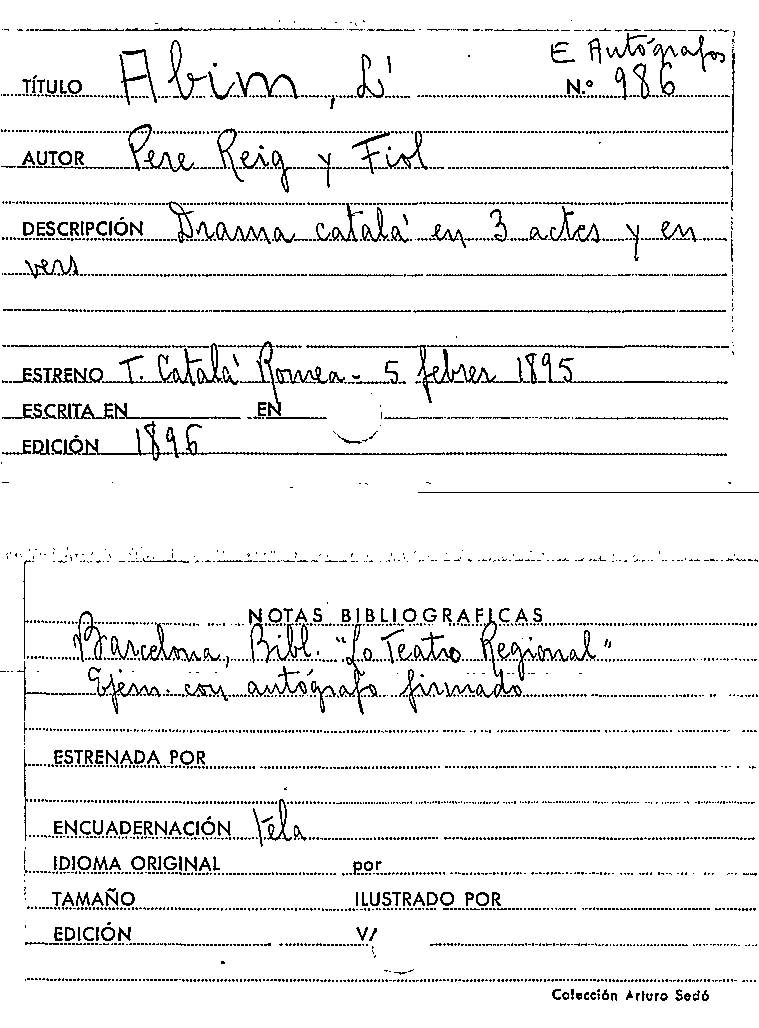 E Autógrafos
TÍTULO Abim, L' N.º 986
AUTOR Pere Reig y Fiol
DESCRIPCIÓN Drama catalá en 3 actes y en
vers
ESTRENO T. Catalá Romea - 5 febrer 1895
ESCRITA EN EN
EDICIÓN 1896
NOTAS BIBLIOGRAFICAS
Barcelona, Bibl. "Lo Teatro Regional"
Ejem. con autógrafo firmado
ESTRENADA POR
ENCUADERNACIÓN tela
IDIOMA ORIGINAL por
TAMAÑO ILUSTRADO POR
EDICIÓN V/
Colección Arturo Sedó